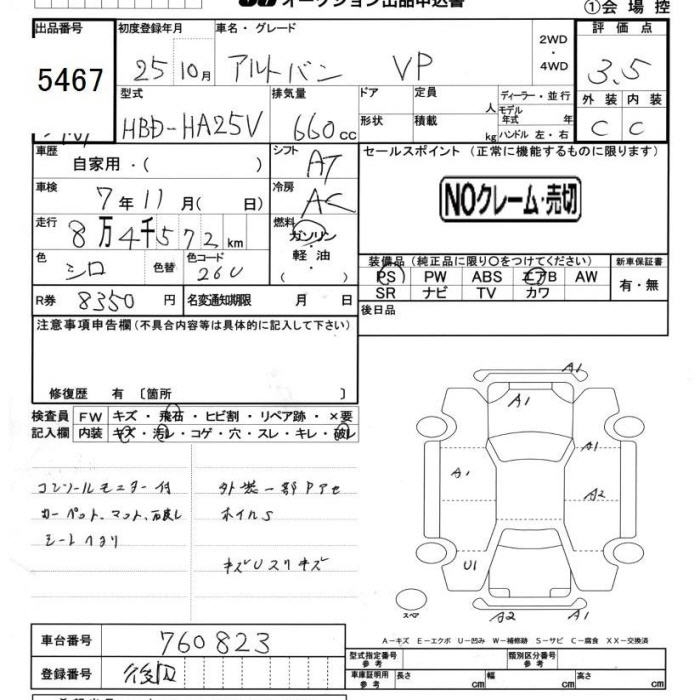 オークション出品申込書
①会場控
出品番号 初度登録年月 車名・グレード 評価点
5467 25 10月 アルトバン VP 2WD・4WD 3.5
型式 排気量 ドア 定員 人 ディーラー・並行 外装 内装
HBD-HA25V 660cc 形状 積載 kg モデル年式 年 C C
ハンドル 左・右
車歴 自家用・( ) シフト AT セールスポイント (正常に機能するものに限ります)
車検 7年11月( 日) 冷房 AC
NOクレーム・売切
走行 8万4千572km 燃料 ガソリン・軽油・( )
色 シロ 色替 色コード 26U
装備品 (純正品に限り○をつけてください) 新車保証書
PS PW ABS エアB AW 有・無
SR ナビ TV カワ
R券 8350円 名変通知期限 月 日
後日品
注意事項申告欄 (不具合内容等は具体的に記入して下さい)
修復歴 有 〔箇所 〕
検査員 FW キズ・飛石・ヒビ割・リペア跡・×要
記入欄 内装 キズ・汚レ・コゲ・穴・スレ・キレ・破レ
コンソールモニター付 外装一部Pアセ
カーペット、マット、 ホイルS
シートヘタリ
キズUスリキズ
A1
A1
A1
A1
A2
U1
スペア
A2 A1
A-キズ E-エクボ U-凹み W-補修跡 S-サビ C-腐食 XX-交換済
車台番号 760823
登録番号 後日
型式指定番号 参考 類別区分番号 参考
車庫証明用 参考 長さ cm 幅 cm 高さ cm